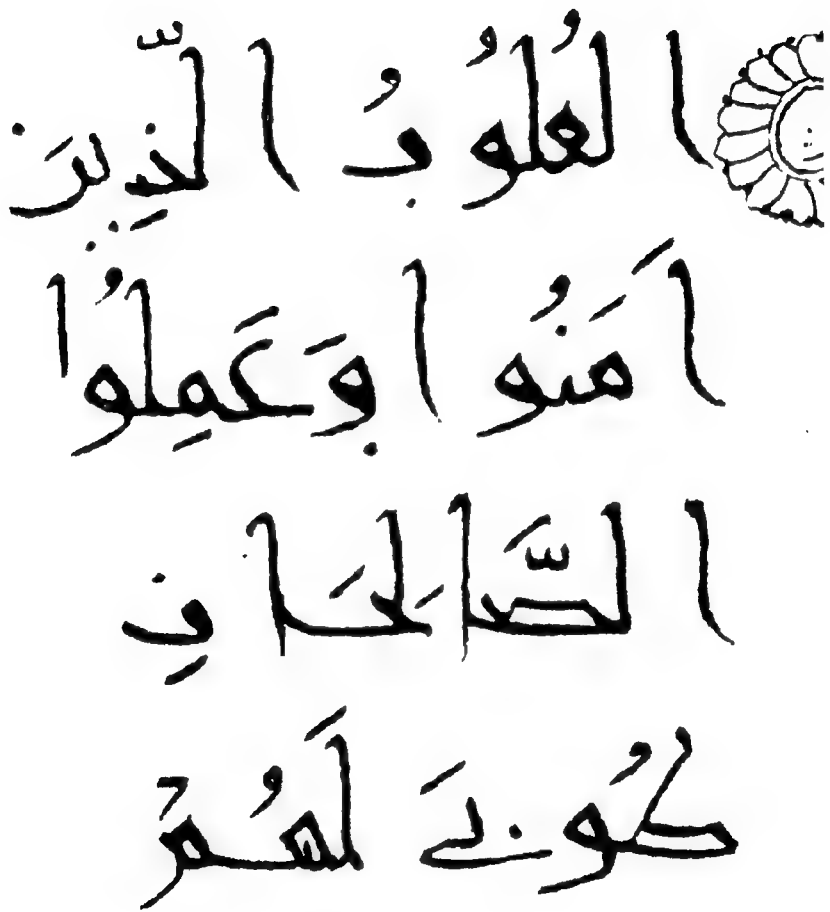 الْقُلُوبُ الَّذِينَ
اَمَنُوا وَعَمِلُوا
الصَّالِحَاتِ
طُوبَى لَهُمْ